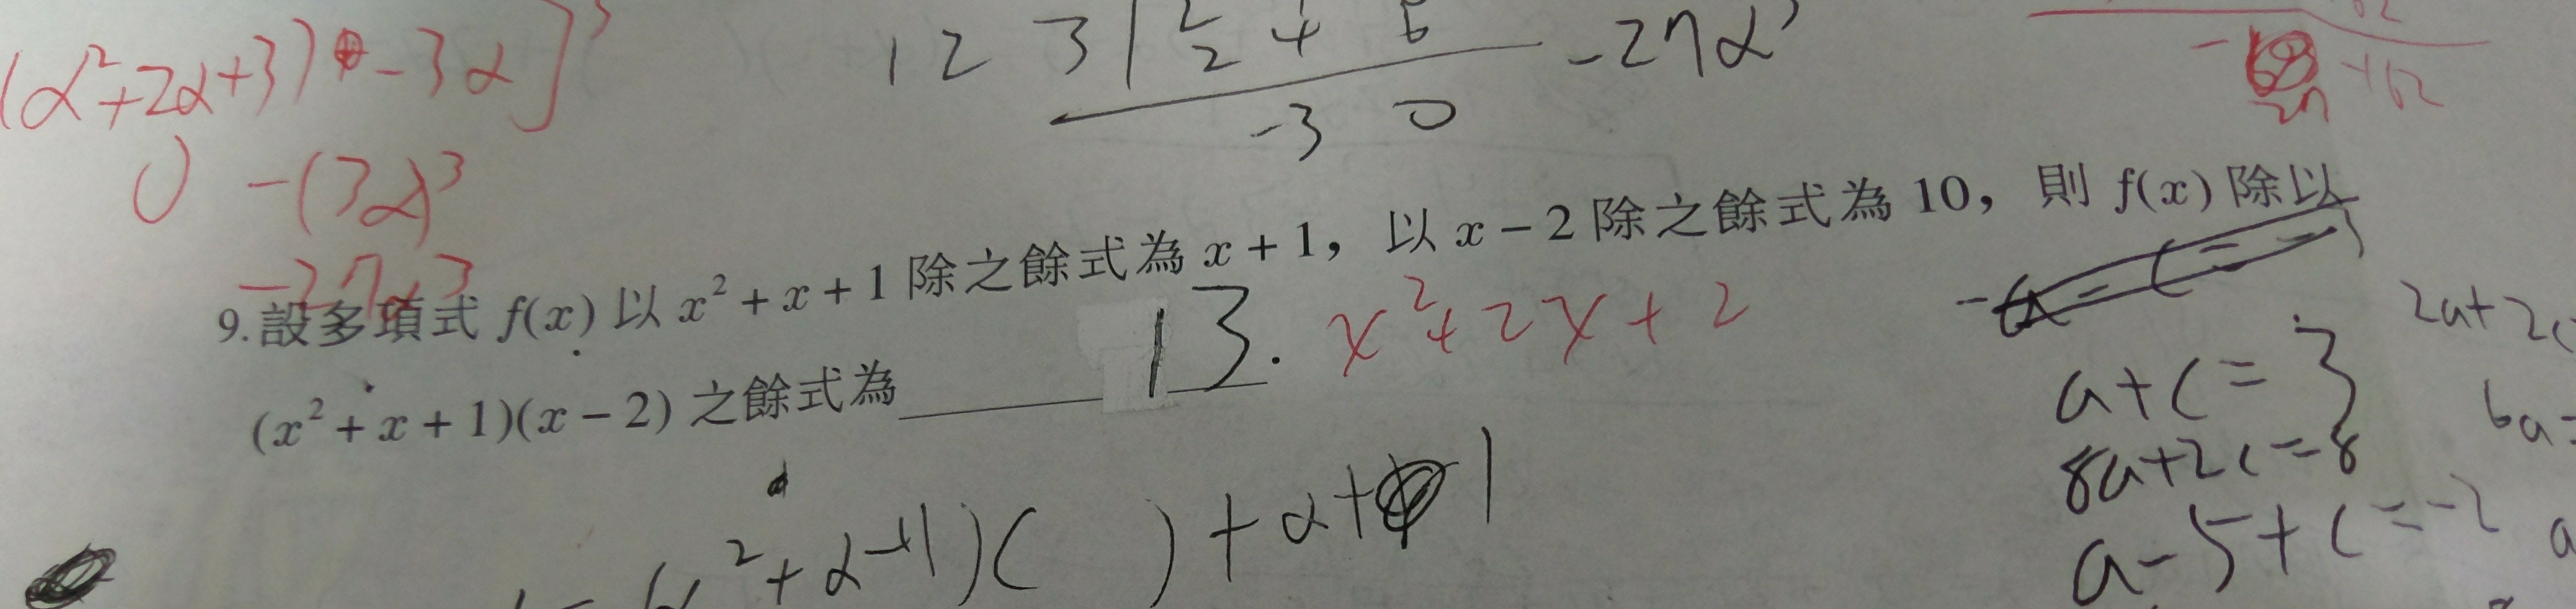 (α²+2α+3) -3α]³
0 -(3α)³
-27α³
1 2 3 | 2 4 6 -27α³
-3 0
-162
9.設多項式 f(x) 以 x²+x+1 除之餘式為 x+1，以 x-2 除之餘式為 10，則 f(x) 除以
(x²+x+1)(x-2) 之餘式為
13. x²+2x+2
a+c=3
8a+2c=8
a-5+c=-2
2a+2c
6a=
²+α+1)( )+α+1